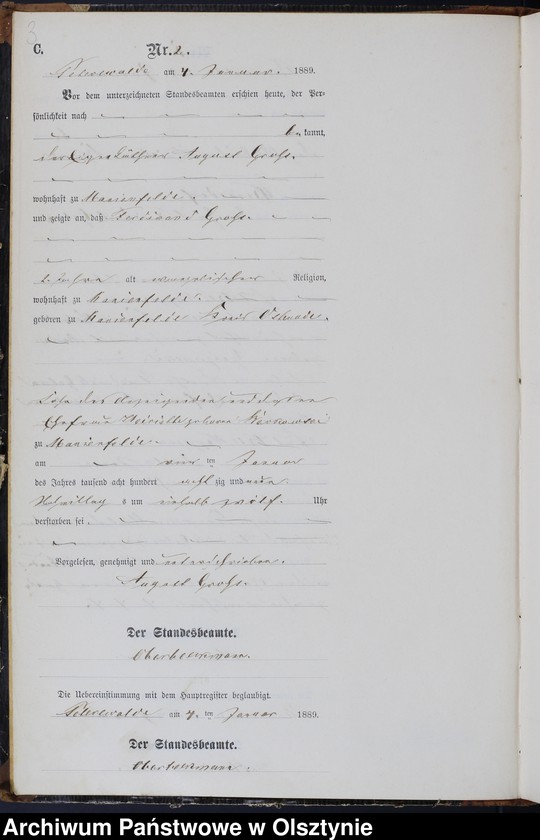 3
C. Nr. 2.
Peterswalde am 4. Januar. 1889.
Vor dem unterzeichneten Standesbeamten erschien heute, der Per-
sönlichkeit nach
be kannt,
August Groß.
wohnhaft zu Marienfelde.
und zeigte an, daß Ferdinand Groß.
Jahre alt evangelischer Religion,
wohnhaft zu Marienfelde.
geboren zu Marienfelde Kreis Osterode.
Sohn des
Ehefrau geborene
zu Marienfelde.
am vier ten Januar
des Jahres tausend acht hundert acht zig und neun
Vormittag s um zwölf. Uhr
verstorben sei.
Vorgelesen, genehmigt und unterschrieben.
August Groß.
Der Standesbeamte.
Die Uebereinstimmung mit dem Hauptregister beglaubigt.
Peterswalde am 4. ten Januar 1889.
Der Standesbeamte.
Archiwum Państwowe w Olsztynie